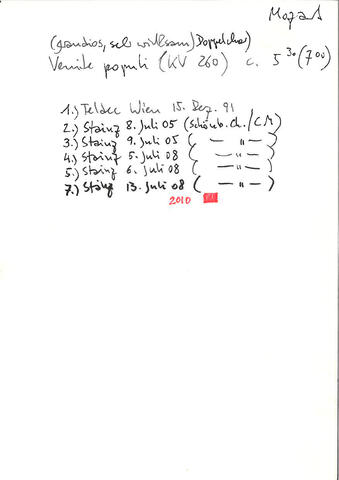 Mozart
(grandios, sehr wirksam) Doppelchor)
Venite populi (KV 260) c. 5³⁰ (7⁰⁰)
1.) Teldec Wien 15. Dez. 91
2.) Stainz 8. Juli 05 (Schönb. Ch. / CM)
3.) Stainz 9. Juli 05 ( — " — )
4.) Stainz 5. Juli 08 ( — " — )
5.) Stainz 6. Juli 08 ( — " — )
7.) Stainz 13. Juli 08 ( — " — )
2010